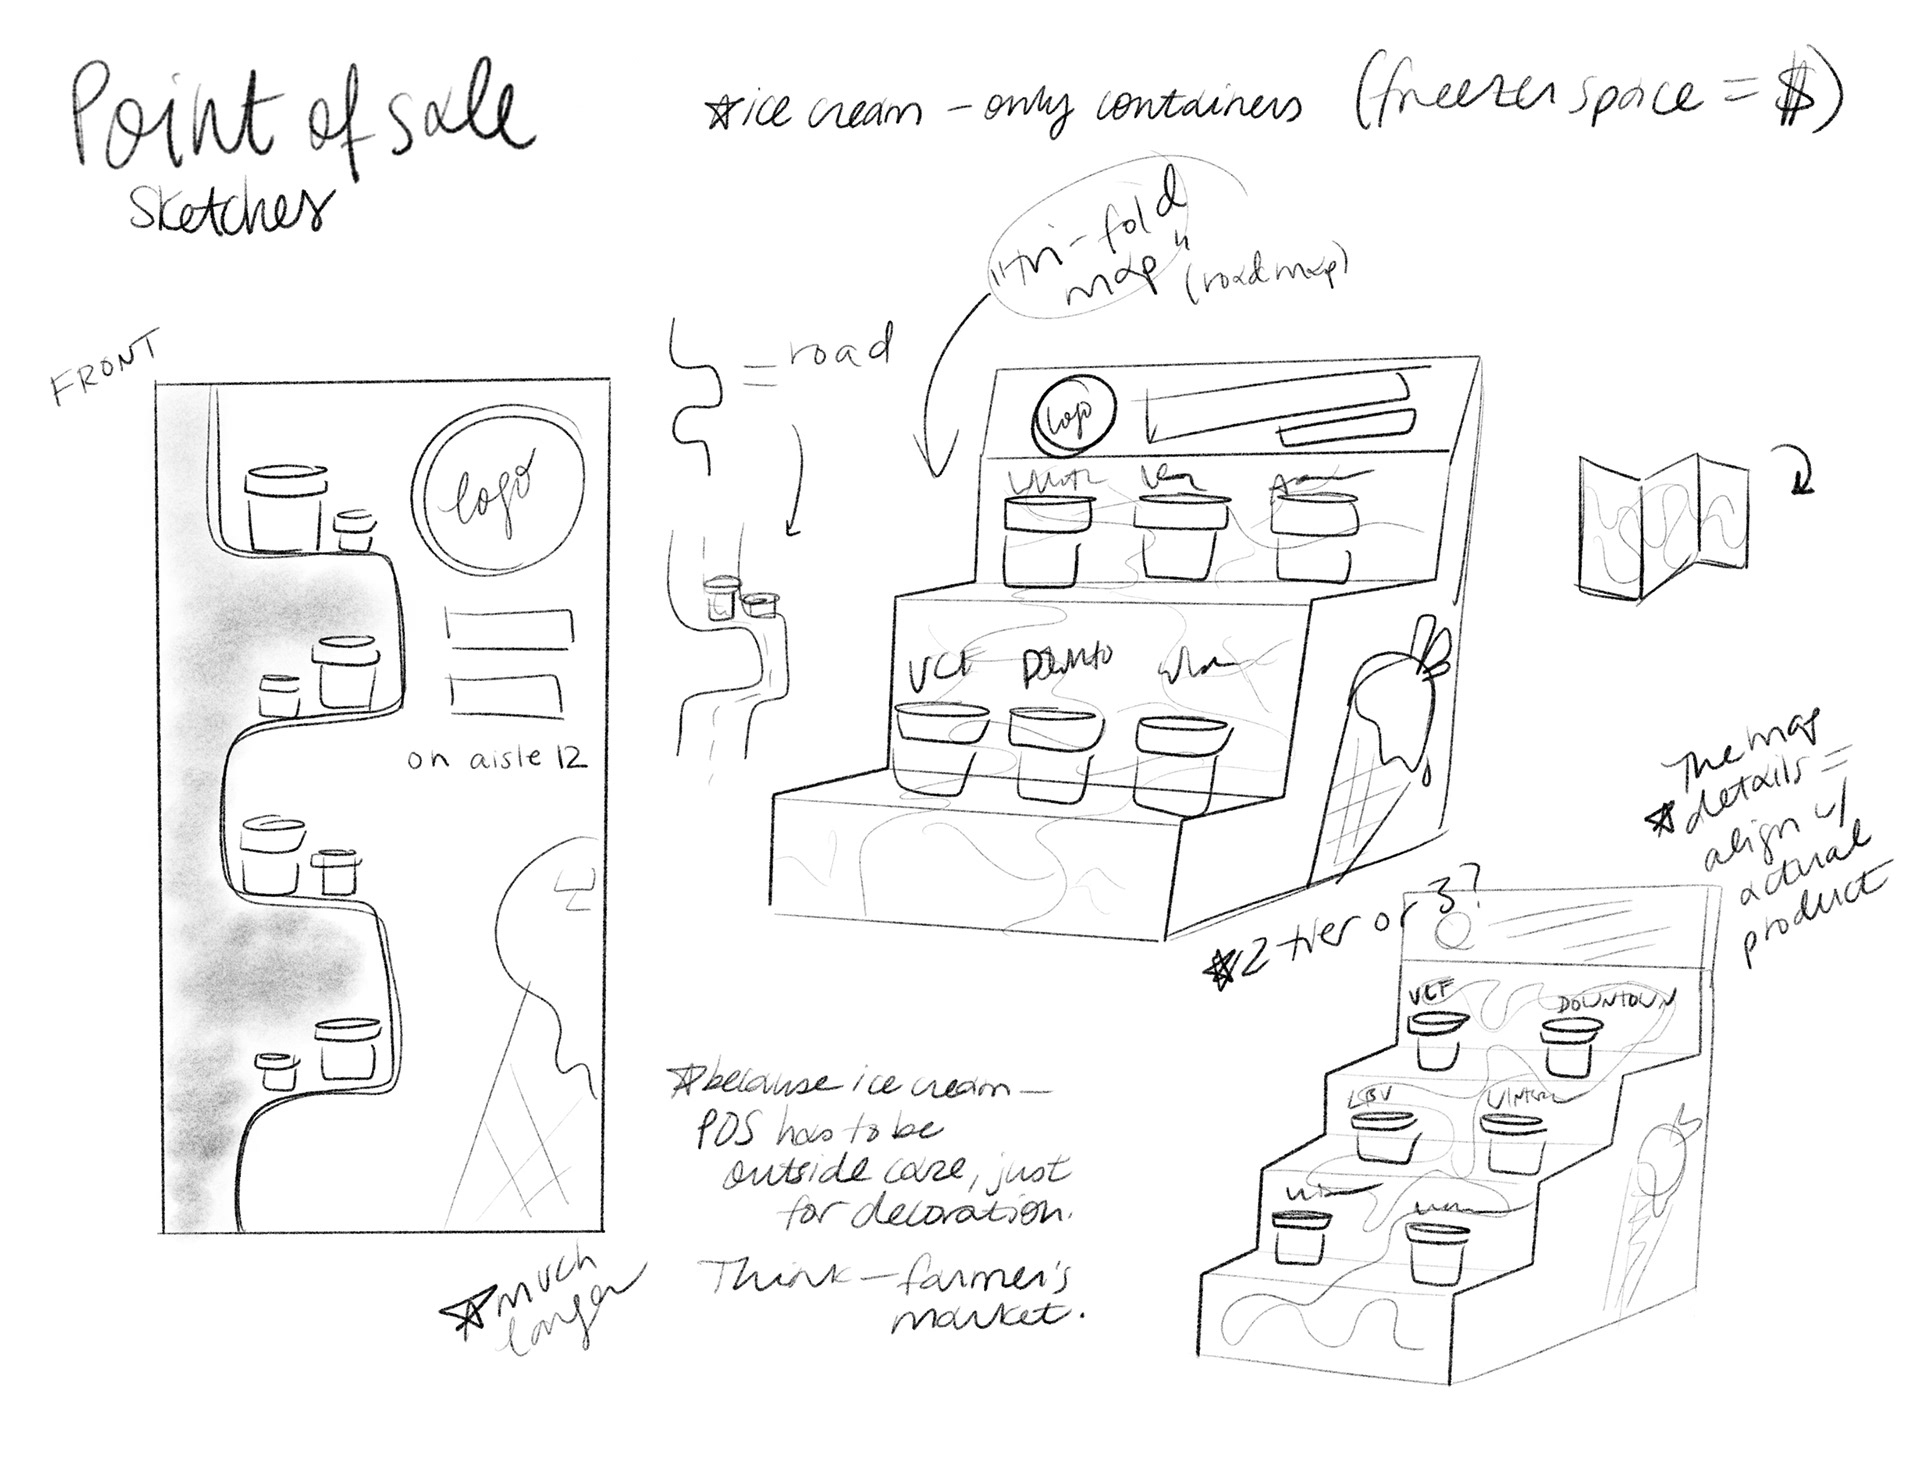 Point of sale
Sketches
☆ice cream – only containers (freezer space = $)
"tri-fold
map"
(roadmap)
FRONT
= road
logo
logo
VCF
on aisle 12
The map
☆details =
align w/
actual
product
☆2 tier or 3?
VCF DOWNTOWN
LBV
☆because ice cream –
POS has to be
outside case, just
for decoration.
Think – farmer's
market.
☆much
longer